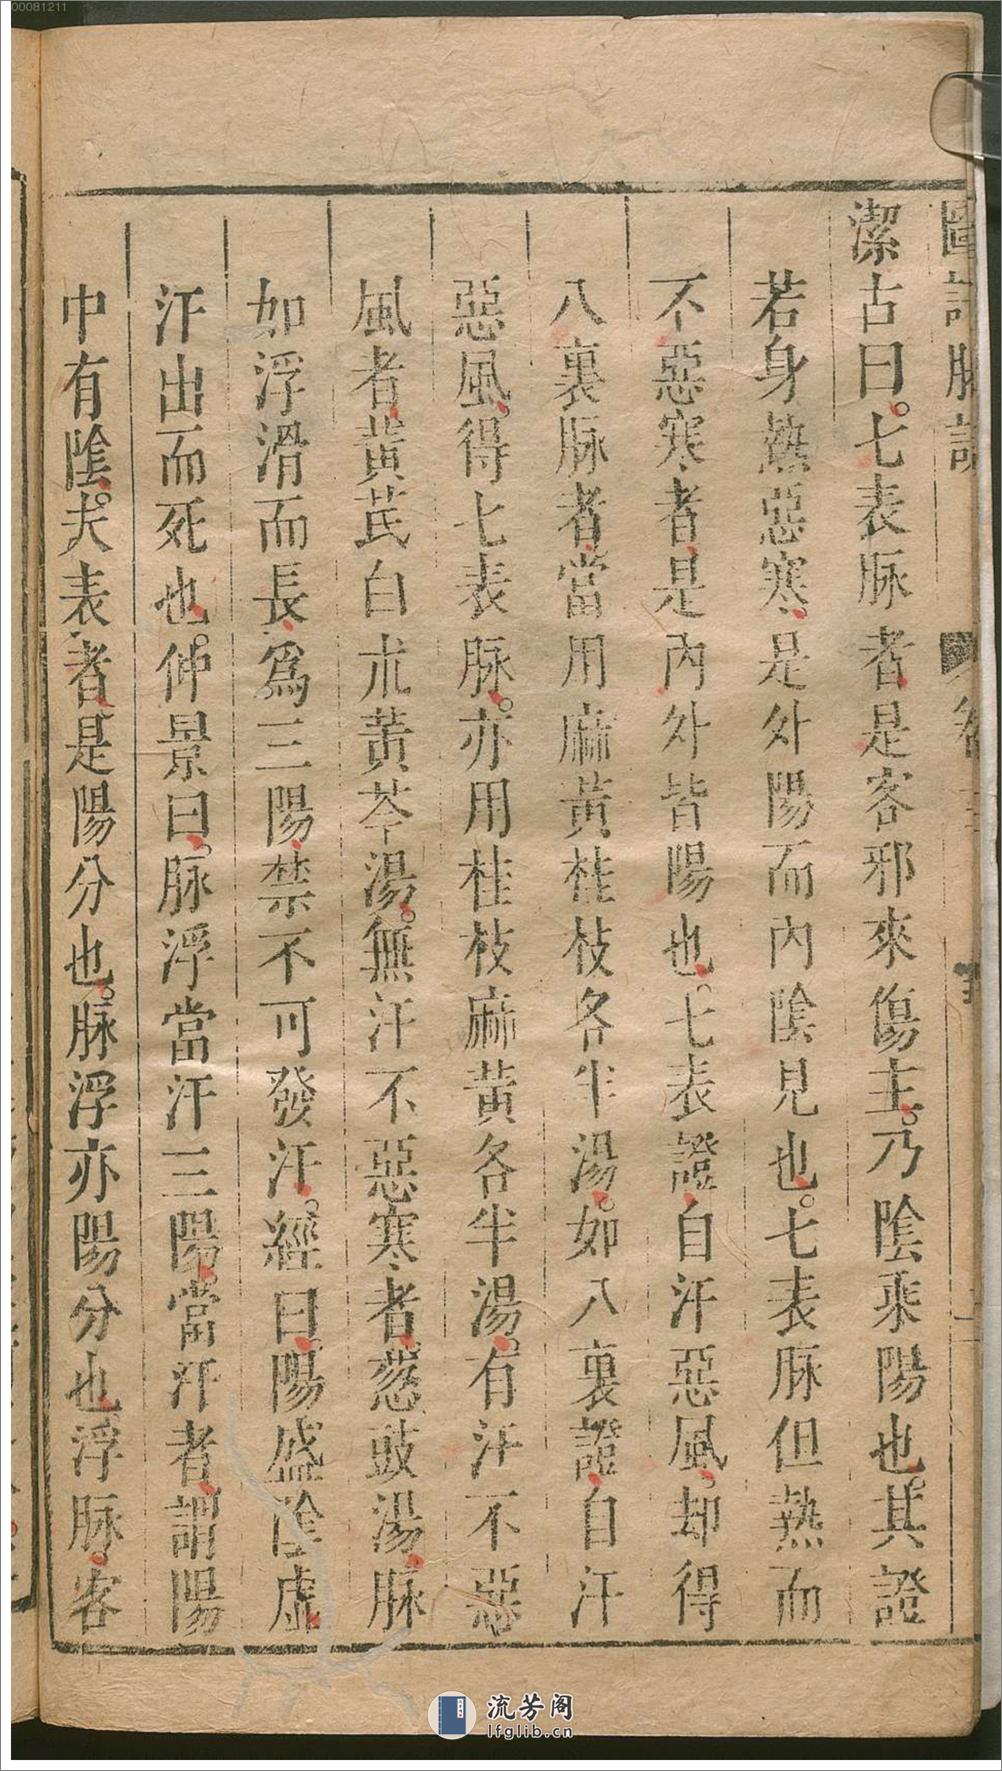 00081211
潔古曰七表脉者是客邪來傷主乃陰乘陽也其證
若身熱惡寒是外陽而內陰見也七表脉但熱而
不惡寒者是內外皆陽也七表證自汗惡風却得
八裏脉者當用麻黃桂枝各半湯如八裏證自汗
惡風得七表脉亦用桂枝麻黃各半湯有汗不惡
風者黃芪白朮黃芩湯無汗不惡寒者葱豉湯脉
如浮滑而長爲三陽禁不可發汗經曰陽盛陰虛
汗出而死也仲景曰脉浮當汗三陽當汗者謂陽
中有陰夫表者是陽分也脉浮亦陽分也浮脉客
流芳阁
lfglib.cn